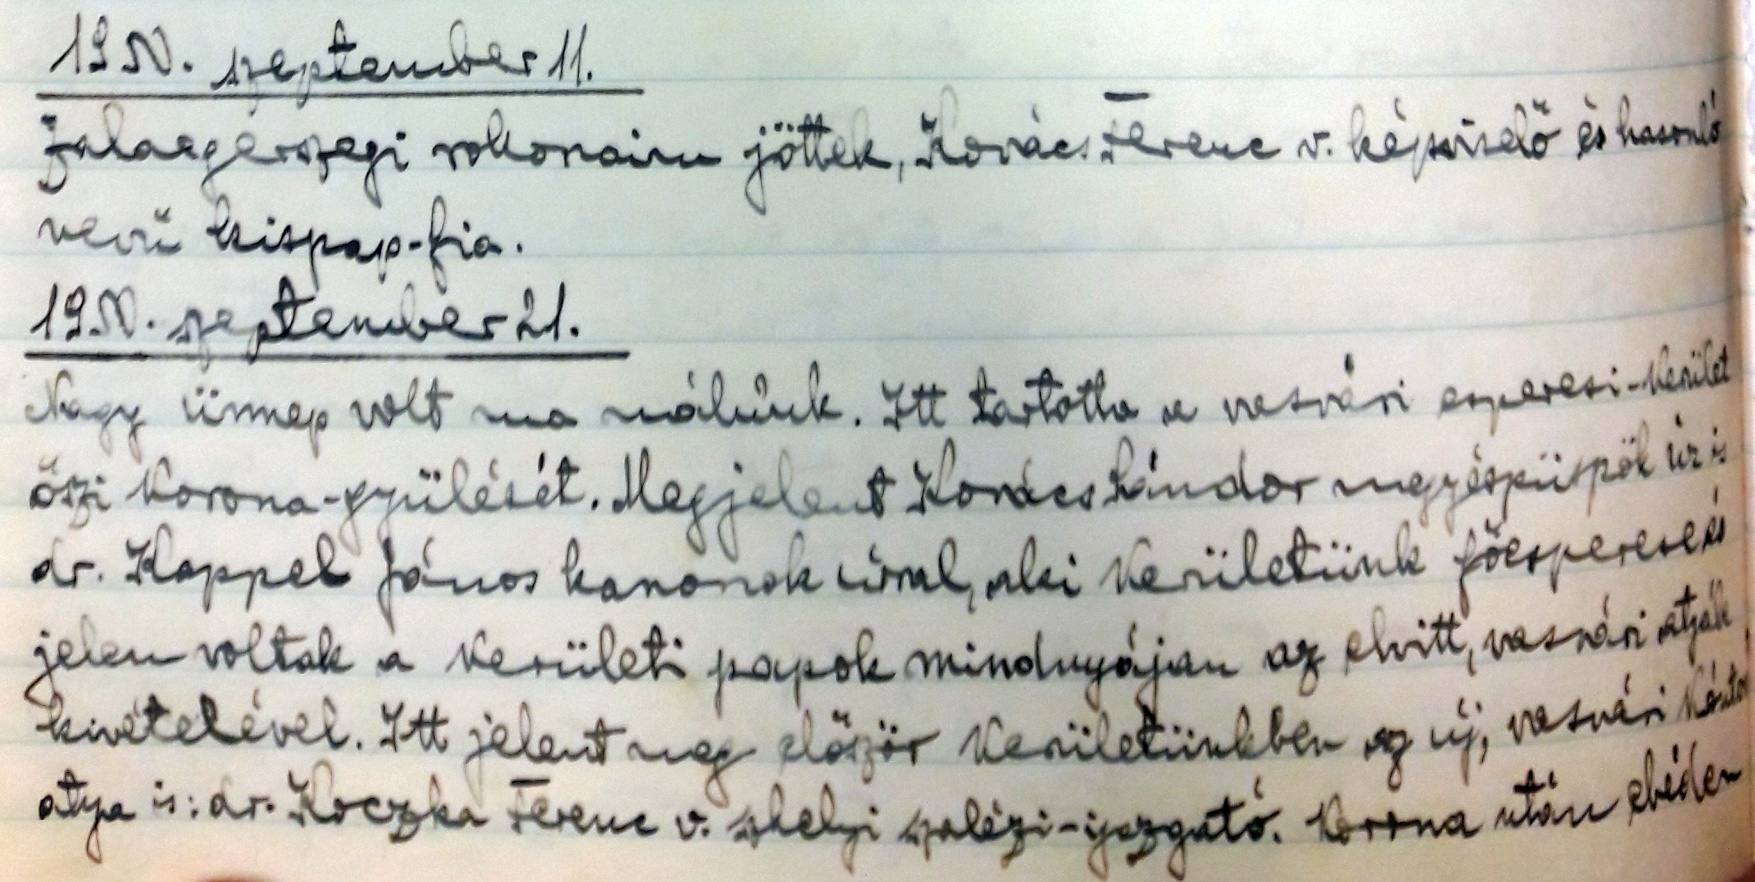 1950. szeptember 11.
Zalaegerszegi rokonaim jöttek, Kovács Ferenc v. képviselő és hasonló
nevű kispap-fia.
1950. szeptember 21.
Nagy ünnep volt ma nálunk. Itt tartotta a vasvári esperesi-kerület
őszi korona-gyülését. Megjelent Kovács Sándor megyéspüspök úr is
dr. Kappel János kanonok úrral, aki kerületünk főesperese és
jelen voltak a kerületi papok mindnyájan az elvitt, vasvári atyák
kivételével. Itt jelent meg először kerületünkben az új, vasvári
atya is: dr. Koczka Ferenc v. szhelyi szalézi-igazgató. Korona után ebéden